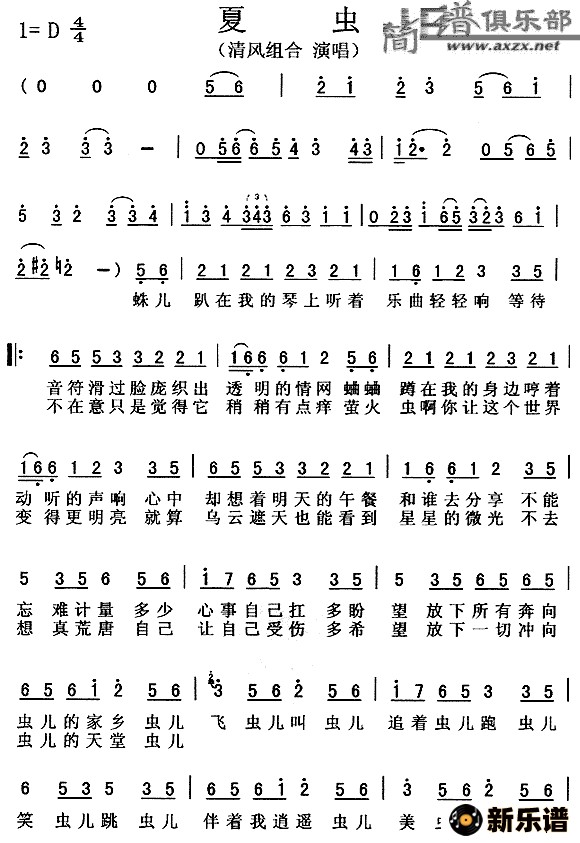 夏 虫
1= D 4/4
(清风组合 演唱)
简谱俱乐部
www.axzx.net
(0 0 0 56 | 21 23 561 |
23 33 — | 0565643 43 | 12· 2 0565 |
5 32 334 | 134343631 1 | 0231653236 1 |
2#2♮2 —) 56 | 2121232 1 | 166123 35 |
蛛儿 趴在我的琴上听着 乐曲轻轻响 等待
6553322 1 | 166612 56 | 2121232 1 |
音符滑过脸庞织出 透明的情网 蛐蛐 蹲在我的身边哼着
不在意只是觉得它 稍稍有点痒 萤火 虫啊你让这个世界
166123 35 | 6553322 1 | 166612 35 |
动听的声响 心中 却想着明天的午餐 和谁去分享 不能
变得更明亮 就算 乌云遮天也能看到 星星的微光 不去
5 356 56 | 1765335 | 5 3356565 |
忘 难计量 多少 心事自己扛 多盼 望 放下所有奔向
想 真荒唐 自己 让自己受伤 多希 望 放下一切冲向
65612 56 | 3 565 56 | 1765335 |
虫儿的家乡 虫儿 飞 虫儿叫 虫儿 追着虫儿跑 虫儿
虫儿的天堂 虫儿
6 535 35 | 65612 56 | 3 562 56
笑 虫儿跳 虫儿 伴着我逍遥 虫儿 美
新乐谱